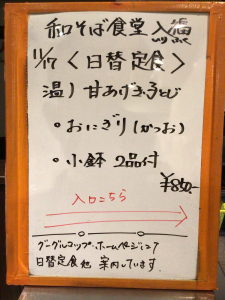 和そば食堂 入福
11/17 〈日替定食〉
温）甘あげ玉子とじ
・おにぎり（かつお）
・小鉢 2品付
¥850-
入口こちら
グーグルマップ・ホームページにて
日替定食他 案内しています